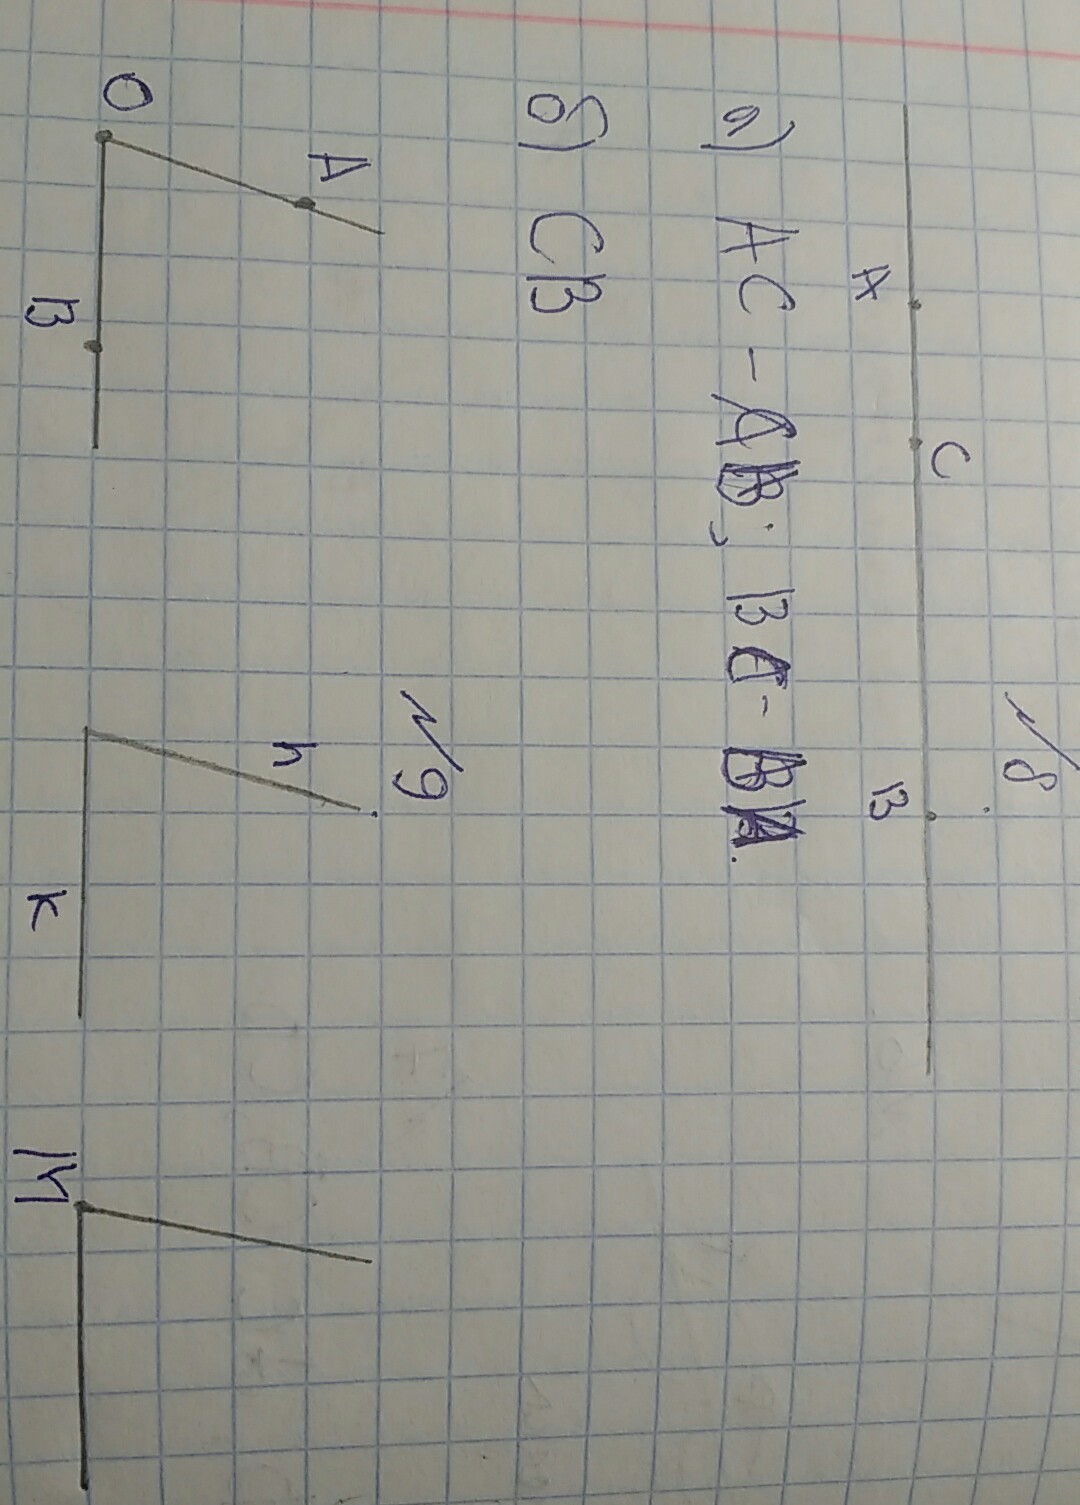 №8
C
A B
а) AC - AB; BC - BA.
б) CB
№9
A
h
O
B k M